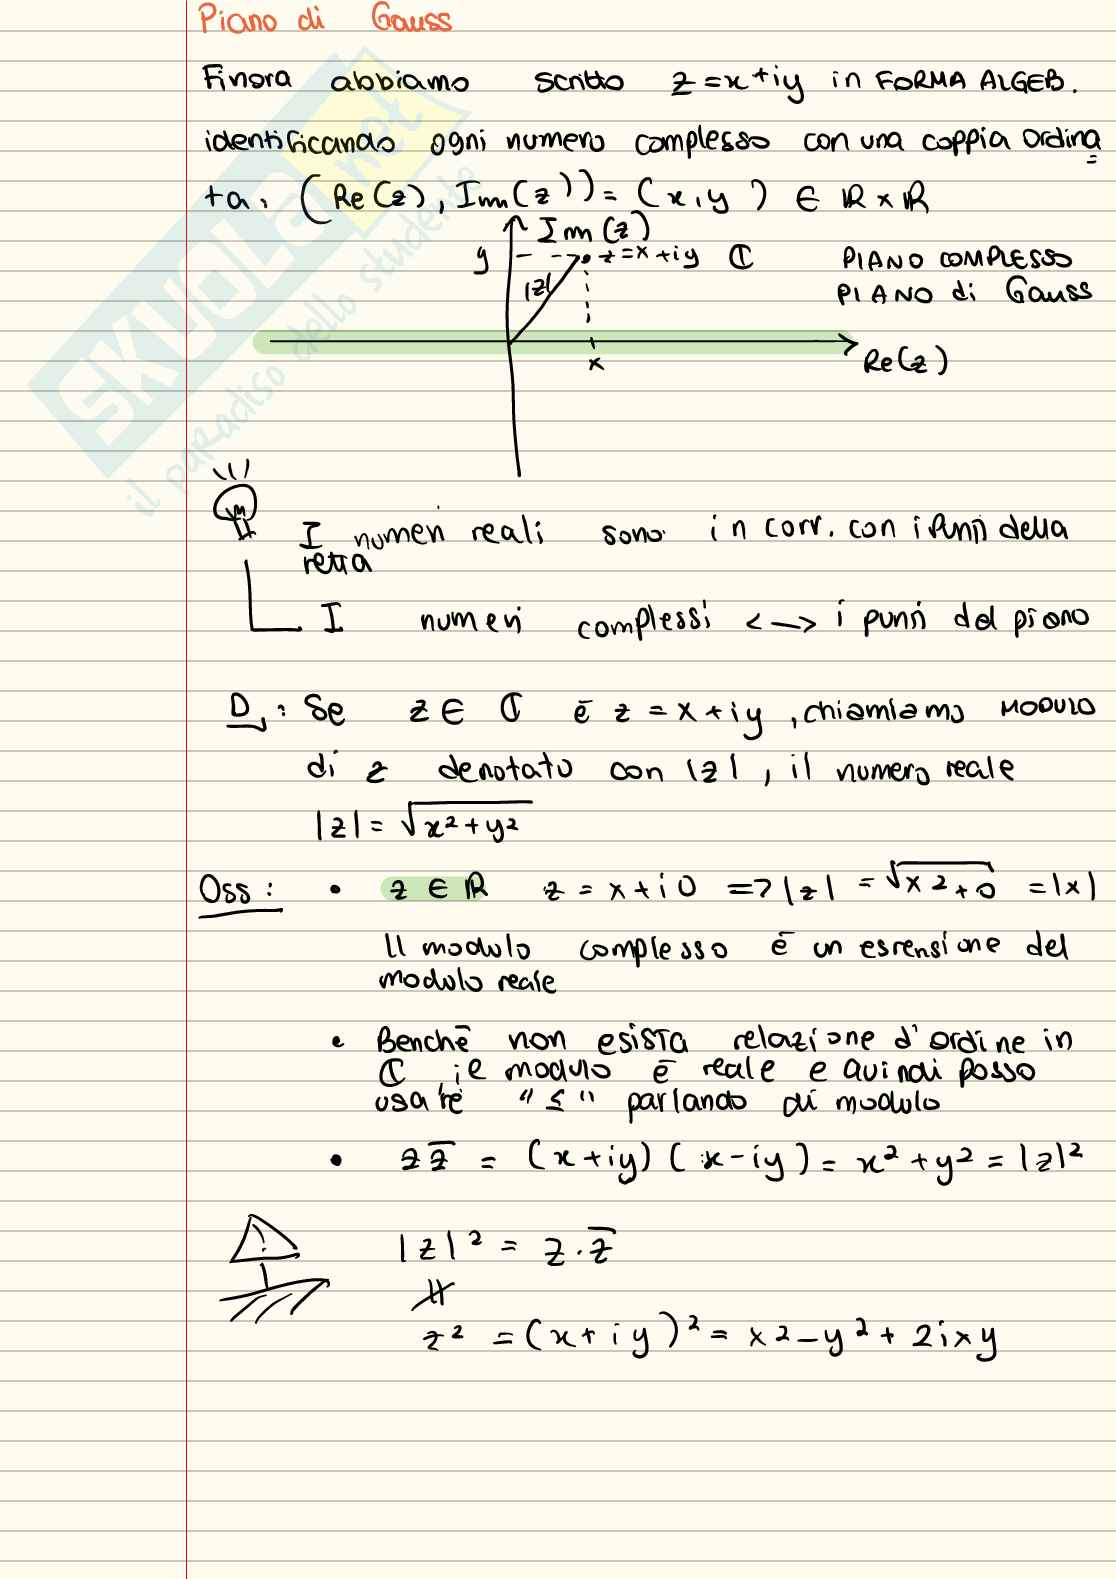 Piano di Gauss
Finora abbiamo scritto z=x+iy in FORMA ALGEB.
identificando ogni numero complesso con una coppia ordina=
ta, (Re(z), Imm(z)) = (x,y) ∈ ℝ×ℝ
Imm(z)
y z=x+iy ℂ PIANO COMPLESSO
|z| PIANO di Gauss
x Re(z)
I numeri reali sono in corr. con i punti della
retta
I numeri complessi <-> i punti del piano
D: Se z ∈ ℂ è z = x+iy, chiamiamo MODULO
di z denotato con |z|, il numero reale
|z| = √(x²+y²)
Oss: • z ∈ ℝ z = x+i0 => |z| = √(x2+0) = |x|
Il modulo complesso è un estensione del
modulo reale
• Benchè non esista relazione d'ordine in
ℂ, il modulo è reale e quindi posso
usare "≤" parlando di modulo
• z z̅ = (x+iy)(x-iy) = x²+y² = |z|²
! |z|² = z·z̅
∦
z² = (x+iy)² = x2-y²+2ixy
SKUOLA.net
il paradiso dello studente